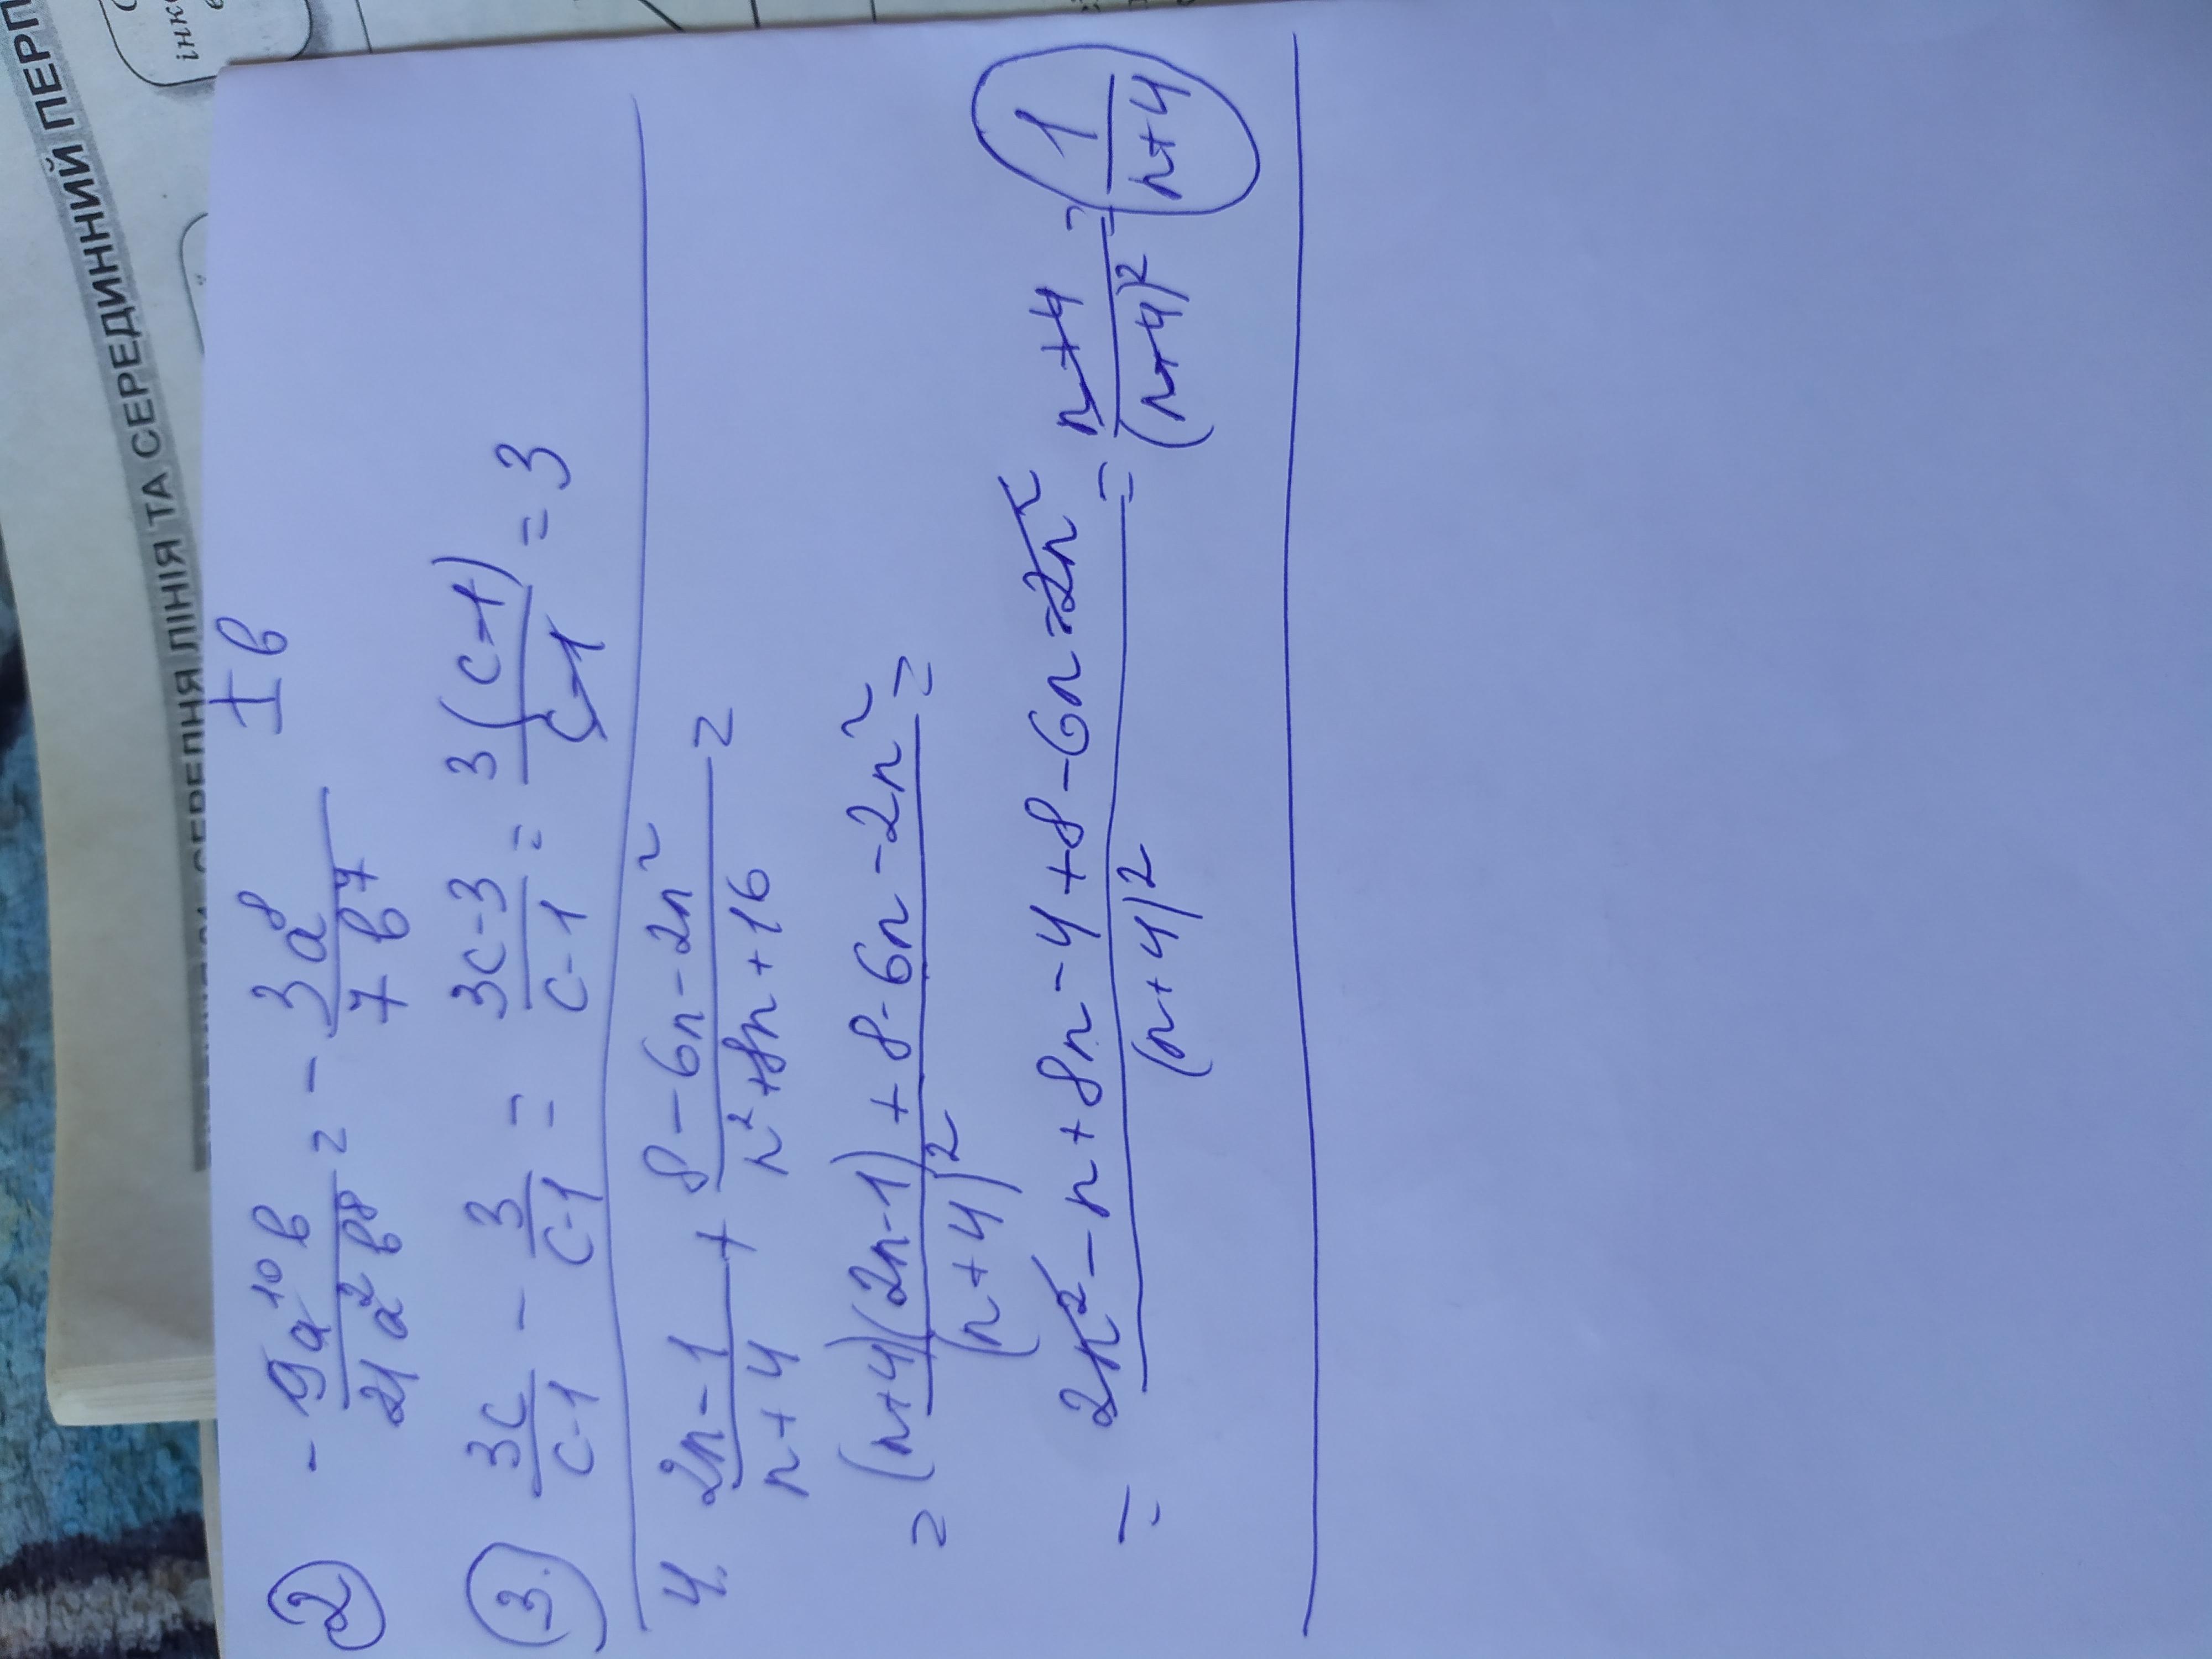 СЕРЕДНЯ ЛІНІЯ ТА СЕРЕДИННИЙ ПЕРП
інк
I в
② - 9a¹⁰b / 21a²b⁸ = - 3a⁸ / 7b⁷
③. 3c / c-1 - 3 / c-1 = 3c-3 / c-1 = 3(c-1) / c-1 = 3
4. 2n-1 / n+4 + 8-6n-2n² / n²+8n+16 =
= (n+4)(2n-1)+8-6n-2n² / (n+4)² =
= 2n²-n+8n-4+8-6n-2n² / (n+4)² = n+4 / (n+4)² = 1 / n+4